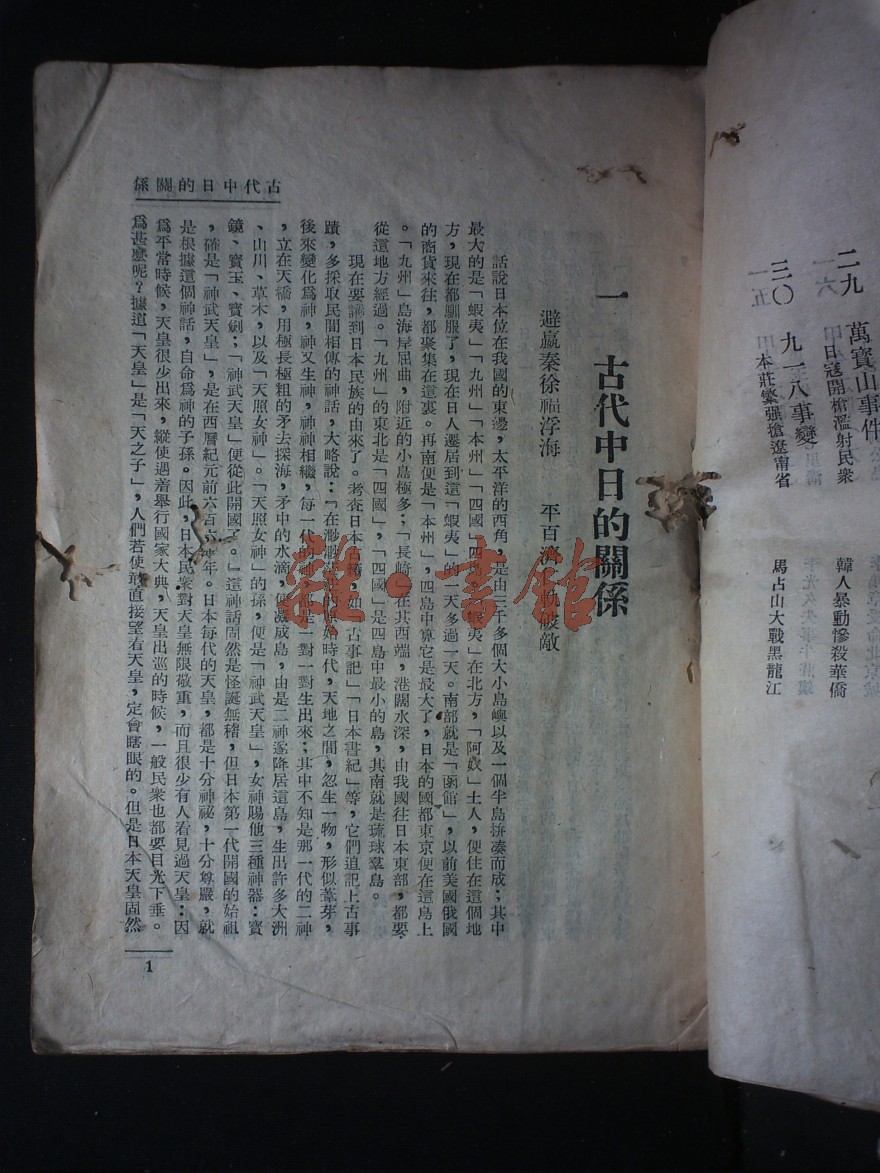 二九 萬寶山事件
日寇開槍濫射民衆 韓人暴動慘殺華僑
三〇 九一八事變
本莊繁强搶遼甯省 馬占山大戰黑龍江
一 古代中日的關係
避嬴秦徐福浮海 平百濟 破敵
話說日本位在我國的東邊,太平洋的西角,是由三千多個大小島嶼以及一個半島拚湊而成;其中
最大的是「蝦夷」「九州」「本州」「四國」四 蝦夷」在北方,「阿奴」土人,便住在這個地
方,現在都馴服了,現在日人遷居到這「蝦夷」的一天多過一天。南部就是「函館」,以前美國俄國
的商貨來往,都聚集在這裏。再南便是「本州」,四島中算它是最大了,日本的國都東京便在這島上
。「九州」島海岸屈曲,附近的小島極多;「長崎 在其西端,港闊水深,由我國往日本東部,都要
從這地方經過。「九州」的東北是「四國」,「四國」是四島中最小的島,其南就是琉球羣島。
現在要講到日本民族的由來了。考查日本古 ,如 古事記」「日本書紀」等,它們追記上古事
蹟,多採取民間相傳的神話,大略說:「在 的原始時代,天地之間,忽生一物,形似葦芽,
後來變化爲神,神又生神,神神相繼,每一代的 都是一對一對生出來;其中不知是那一代的二神
,立在天橋,用極長極粗的矛去探海,矛中的水滴,便凝成島,由是二神遂降居這島,生出許多大洲
、山川、草木,以及「天照女神」。「天照女神」的孫,便是「神武天皇」,女神賜他三種神器:寶
鏡、寶玉、寶劍;「神武天皇」便從此開國了。」這神話固然是怪誕無稽,但日本第一代開國的始祖
,確是「神武天皇」,是在西曆紀元前六百六 年。日本每代的天皇,都是十分神祕,十分尊嚴,就
是根據這個神話,自命爲神的子孫。因此,日本民衆對天皇無限敬重,而且很少有人看見過天皇:因
爲平常時候,天皇很少出來,縱使遇着舉行國家大典,天皇出巡的時候,一般民衆也都要目光下垂。
爲甚麽呢?據道「天皇」是「天之子」,人們若使敢直接望着天皇,定會瞎眼的。但是日本天皇固然
古代中日的關係
1